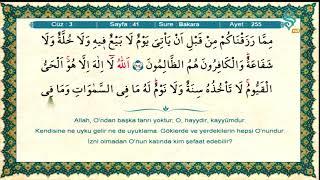 Cüz : 3 Sayfa : 41 Sure : Bakara Ayet : 255
مِمَّا رَزَقْنَاكُمْ مِنْ قَبْلِ اَنْ يَاْتِىَ يَوْمٌ لَا بَيْعٌ فِيهِ وَلَا خُلَّةٌ وَلَا
شَفَاعَةٌ وَالْكَافِرُونَ هُمُ الظَّالِمُونَ اَللّٰهُ لَٓا اِلٰهَ اِلَّا هُوَ اَلْحَىُّ
الْقَيُّومُ لَا تَاْخُذُهُ سِنَةٌ وَلَا نَوْمٌ لَهُ مَا فِى السَّمٰوَاتِ وَمَا فِى
Allah, O'ndan başka tanrı yoktur; O, hayydir, kayyümdur.
Kendisine ne uyku gelir ne de uyuklama. Göklerde ve yerdekilerin hepsi O'nundur.
İzni olmadan O'nun katında kim şefaat edebilir?